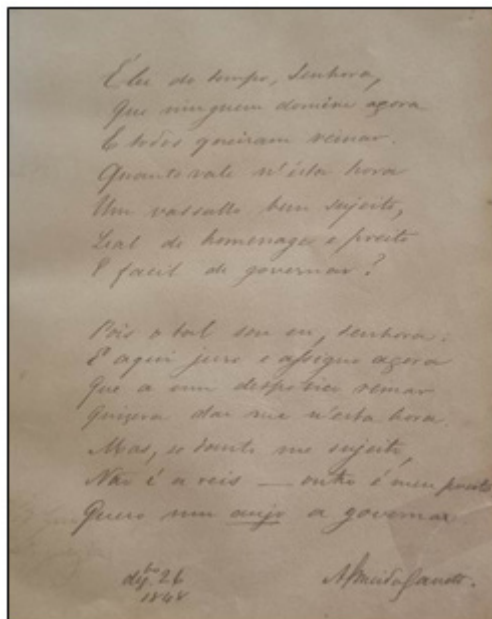 É lei do tempo, Senhora,
Que ninguem domine agora
E todos queiram reinar.
Quanto vale n'ésta hora
Um vassallo bem sujeito,
Leal de homenage e preito
E facil de governar?
Pois o tal sou eu, senhora:
E aqui juro e assigno agora
Que a um despotico reinar
me n'esta hora.
Mas, se tanto me sujeito,
Não é a reis — outro é meu preito
Quero um anjo a governar
dz.bro 26
1848
Almeida Garrett.